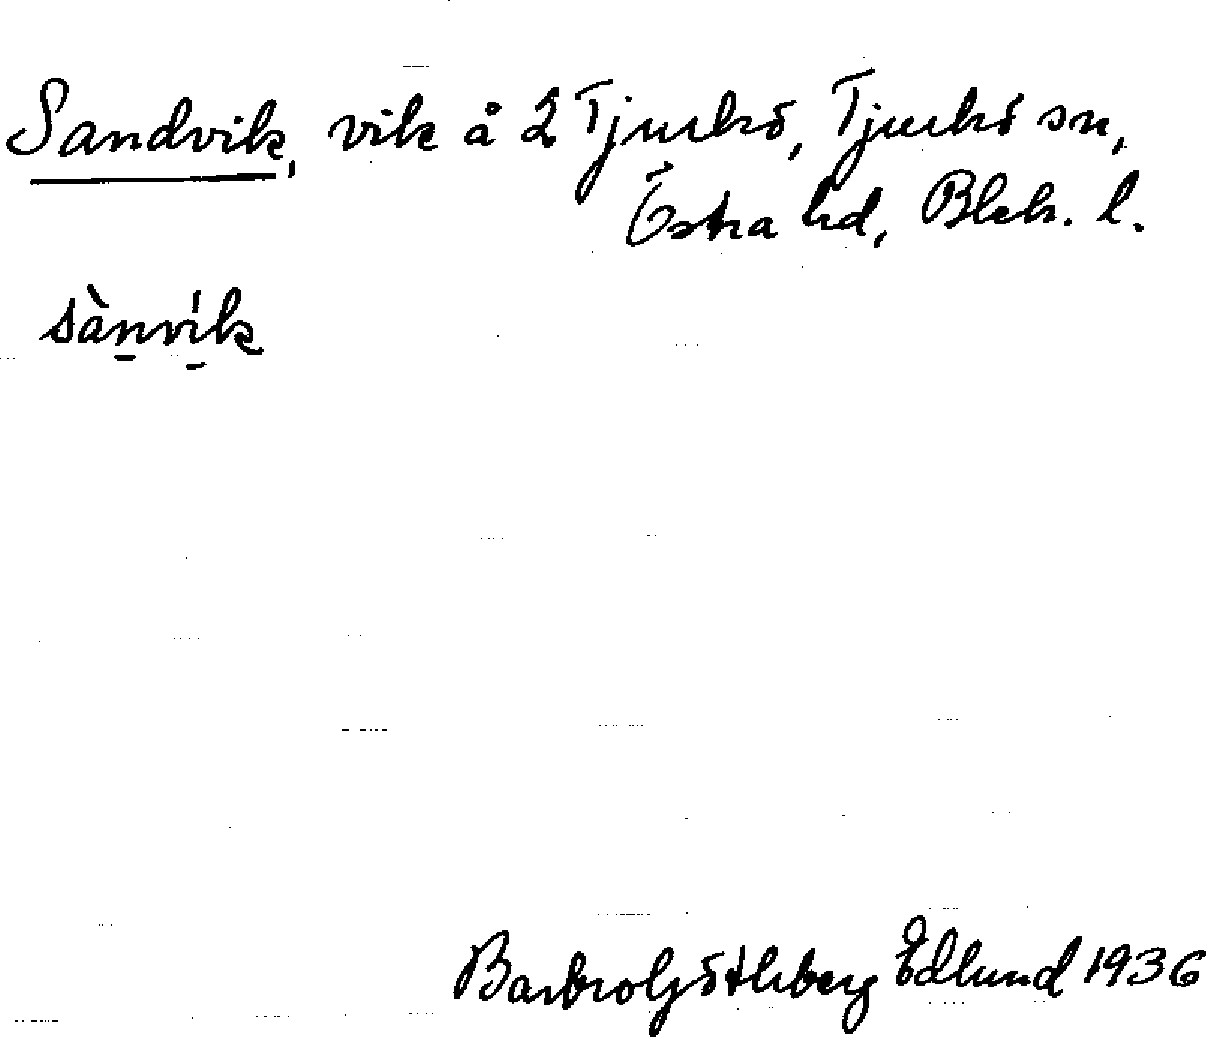 Sandvik, vik å 2 Tjurkö, Tjurkö sn,
Östra hd, Blek. l.
sànvik
Barbro Götleberg Edlund 1936